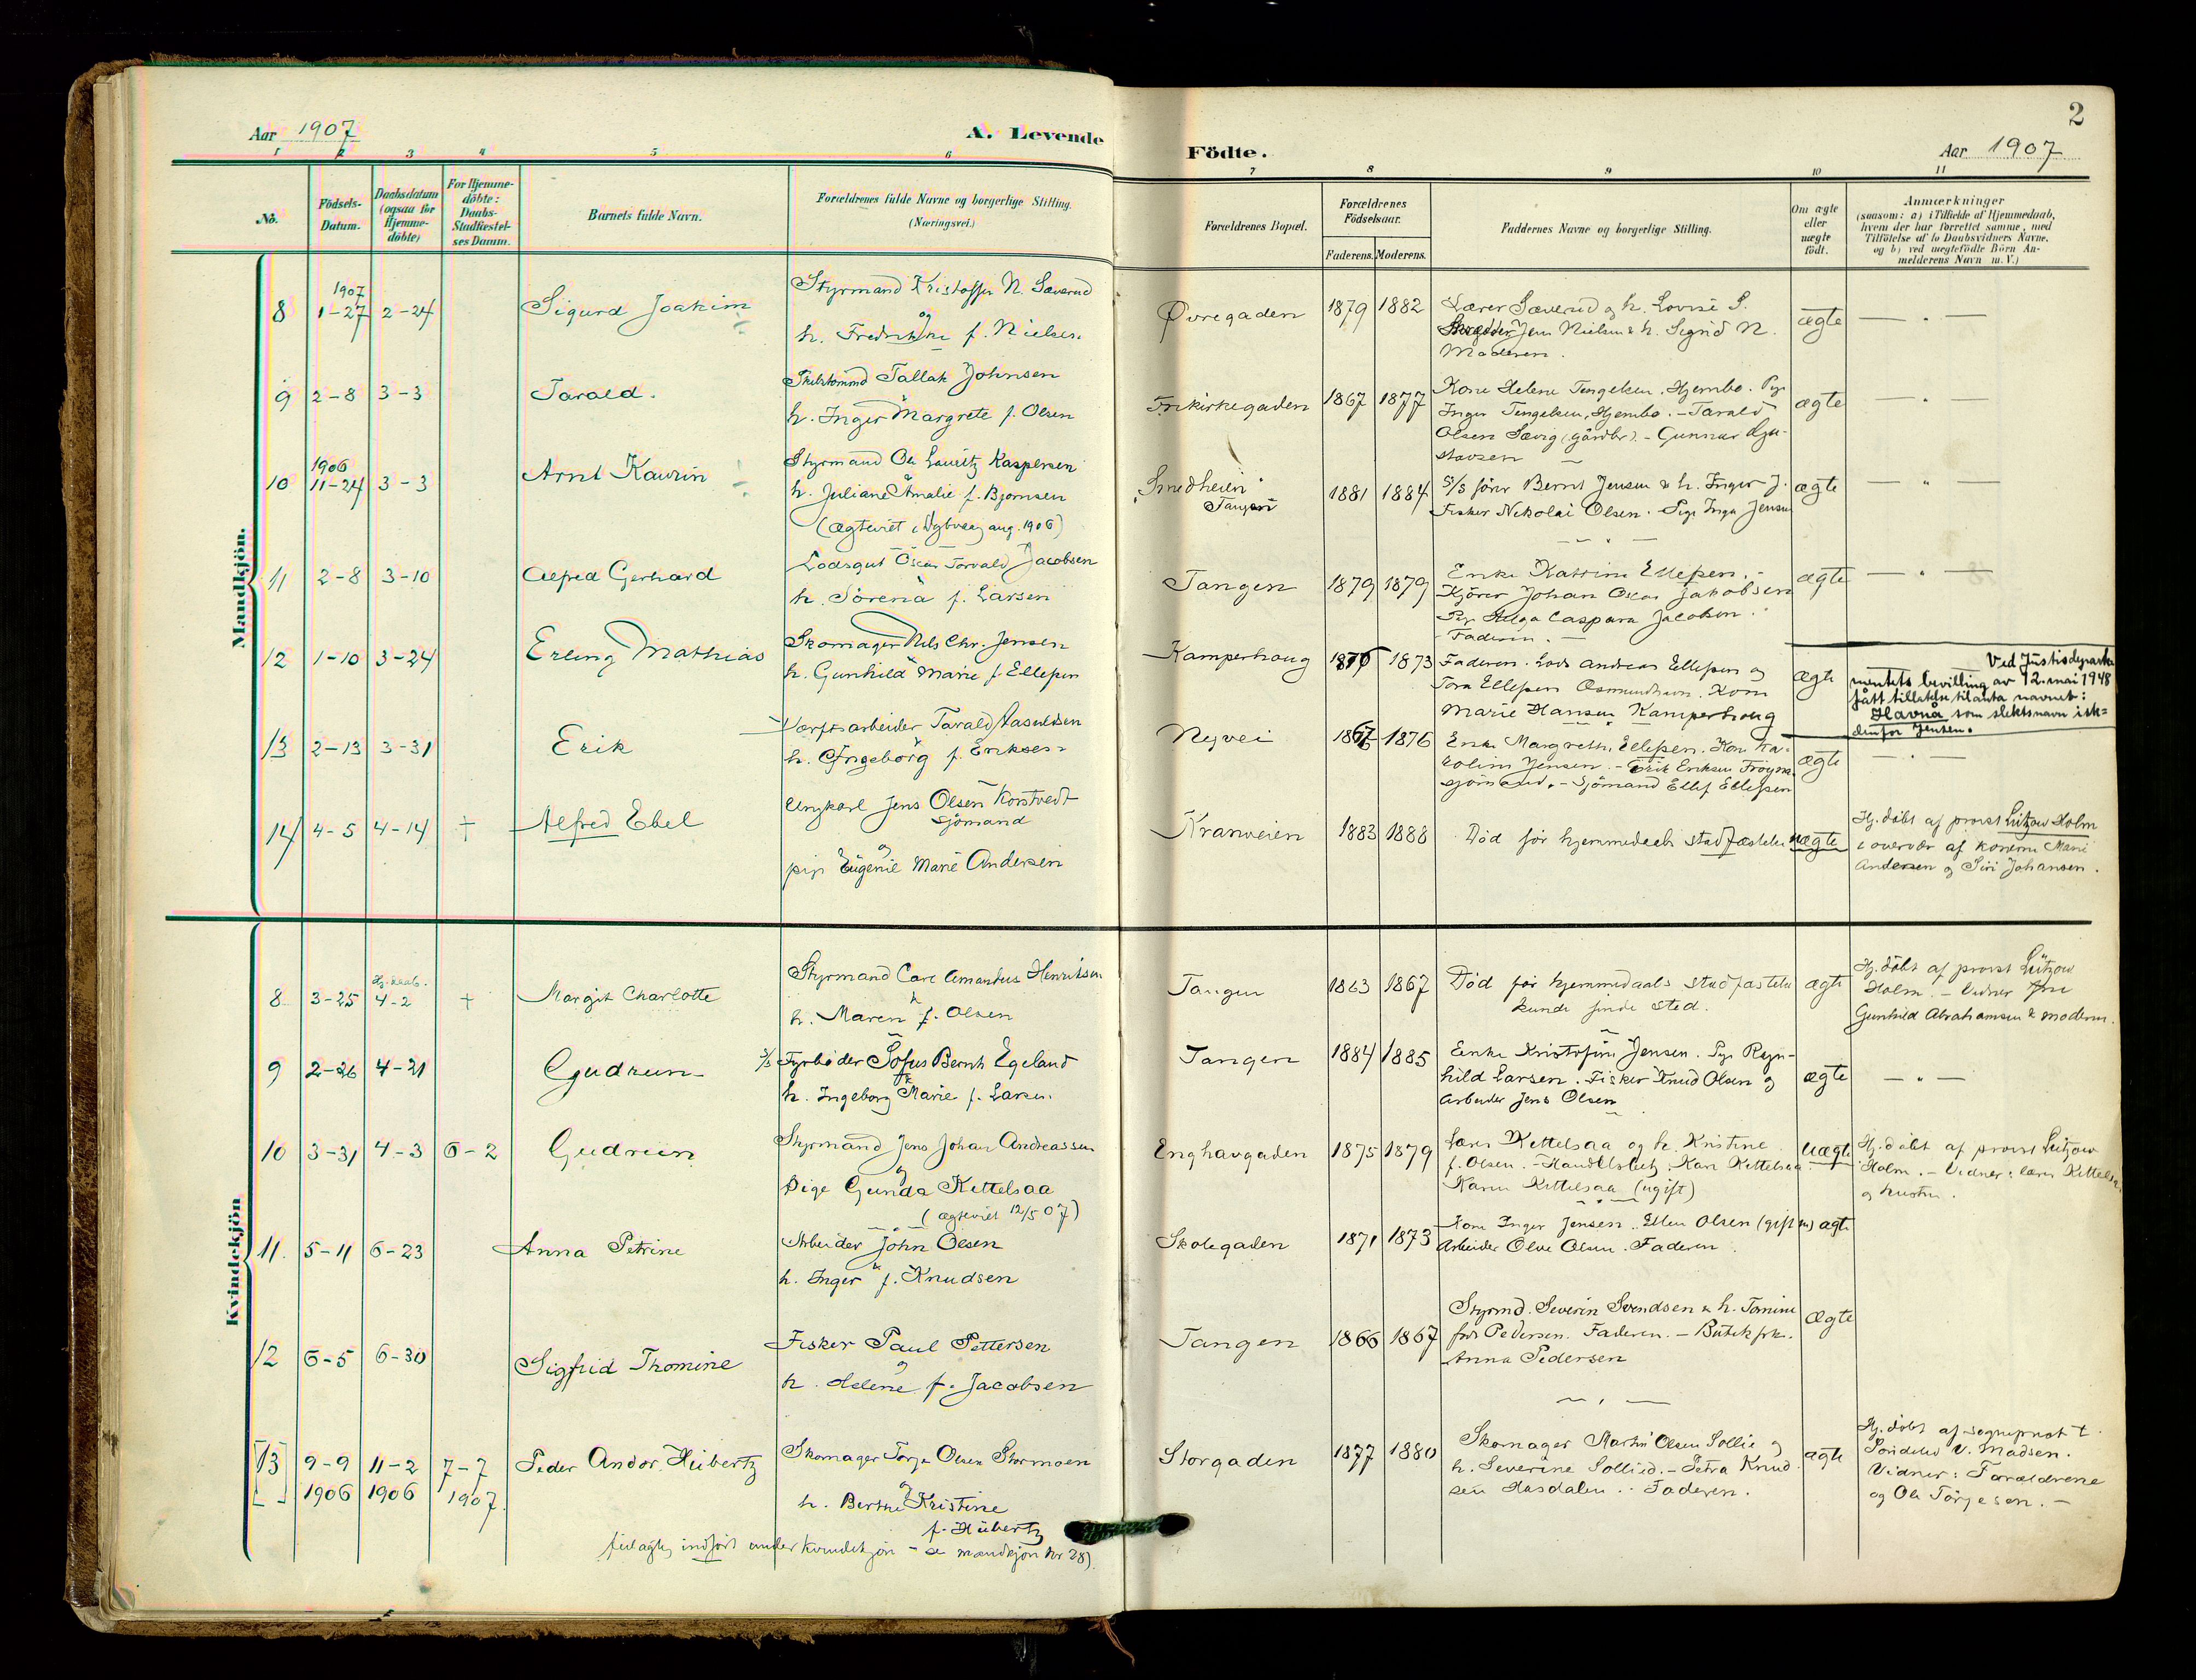 Aar 1907
A. Levende
Födte.
Aar 1907
2
1 2 3 4 5 6 7 8 9 10 11
No.
Födsels-
Datum.
Daabsdatum
(ogsaa for
Hjemme-
döbte)
For Hjemme-
döbte:
Daabs-
Stadfæstel-
ses Datum.
Barnets fulde Navn.
Forældrenes fulde Navne og borgerlige Stilling.
(Næringsvei.)
Forældrenes Bopæl.
Forældrenes
Födselsaar.
Faderens. Moderens.
Faddernes Navne og borgerlige Stilling.
Om ægte
eller
uægte
födt.
Anmærkninger
(saasom: a) i Tilfælde af Hjemmedaab,
hvem der har forrettet samme, med
Tilföielse af to Daabsvidners Navne,
og b) ved uægtefödte Börn An-
melderens Navn m. V.)
Mandkjön.
8
1907
1-27
2-24
Sigurd Joakim
Styrmand Kristoffer N. Sæverud
og
h. Fredrikke f. Nielsen
Øvregaden
1879 1882
Lærer Sæverud og h. Lovise S.
Skrædder Jens Nielsen & h. Sigrid N.
Moderen.
ægte
— " —
9
2-8
3-3
Tarald.
Tallak Johnsen
h. Inger Margrete f. Olsen
Frikirkegaden
1867 1877
Kone Helene Tengelsen, Hjembo. Pige
Inger Tengelsen, Hjembo. - Tarald
Olsen Sævig (gårdbr). - Gunnar Gu-
stavsen
ægte
— " —
10
1906
11-24
3-3
Arnt Kaurin
Styrmand Ole Lauritz Kaspersen
h. Juliane Amalie f. Bjørnsen
(ægteviet i Dybvaag aug. 1906)
"Smedheien"
Tangen
1881 1884
S/S fører Bernt Jensen & h. Inger J.
Fisker Nikolai Olsen. Pige Inga Jensen
ægte
— " —
11
2-8
3-10
Alfred Gerhard
Lodsgut Oscar Torvald Jacobsen
h. Sørena f. Larsen
Tangen
1879 1879
Enke Katrine Ellefsen. -
Kjører Johan Oscar Jakobsen
Pige Helga Caspara Jacobsen.
Faderen. —
ægte
— " —
12
1-10
3-24
Erling Mathias
Skomager Nils Chr. Jensen
h. Gunhild Marie f. Ellefsen
Kamperhoug
1876 1873
Faderen. Lods Andreas Ellefsen og
Tora Ellefsen Kone
Marie Hansen Kamperhoug
ægte
Ved Justisdeparte
mentets bevilling av 12. mai 1948
fått tillatelse til å anta navnet:
Havnå som slektsnavn iste-
denfor Jensen.
13
2-13
3-31
Erik
Værftsarbeider Tarald Aasulvsen
h. Ingeborg f. Eriksen
Nyvei
1867 1876
Enke Margrethe Ellefsen. Kone Ka-
roline Jensen. - Erik Eriksen
sjømand. - Sjømand Ellef Ellefsen
ægte
— " —
14
4-5
4-14
+
Alfred Ebel
Ungkarl Jens Olsen Korstvedt
sjømand
og
pige Eugenie Marie Andersen
Kranveien
1883 1888
Død før hjemmedaab stadfæstelse
uægte
Hj. døbt af provst Lützow Holm
i overvær af konerne Marie
Andersen og Siri Johansen.
Kvindekjön
8
3-25
Hj. daab.
4-2
+
Margit Charlotte
Styrmand Carl Amandus Henriksen
&
h. Maren f. Olsen
Tangen
1863 1867
Død før hjemmedaabs stadfæstelse
kunde finde sted.
ægte
Hj. døbt af provst Lützow
Holm. - Vidner
Gunhild Abrahamsen & moderen.
9
2-26
4-21
Gudrun
S/S Fyrbøder Sofus Bernh Egeland
h. Ingeborg Marie f. Larsen.
Tangen
1884 1885
Enke Kristofine Jensen. Pige Ragn-
hild Larsen. Fisker Knud Olsen og
Arbeider Jens Olsen
ægte
— " —
10
3-31
4-3
6-2
Gudrun
Styrmand Jens Johan Andreassen
og
Pige Gunda Kettelsaa
(ægteviet 12/5 07)
Enghavgaden
1875 1879
Lærer Kettelsaa og h. Kristine
f. Olsen. - Handelsbetj. Karl Kettelsaa
Karen Kettelsaa (ugift)
Uægte
Hj. døbt af provst Lützow
Holm. - Vidner: lærer Kettelsaa
og hustru.
11.
5-11
6-23
Anna Petrine
Arbeider John Olsen
&
h. Inger f. Knudsen
Skolegaden
1871 1873
Kone Inger Jensen. Ellen Olsen (gift)
Arbeider Olve Olsen. Faderen.
ægte
12
6-5
6-30
Sigfrid Thomine
Fisker Paul Pettersen
og
h. Helene f. Jacobsen
Tangen
1866 1867
Styrmd. Severin Svendsen & h. Tomine
født Pedersen. Faderen. - Butikfrk.
Anna Pedersen
Ægte
[13]
9-9
1906
11-2
1906
7-7
1907.
Peder Andor Hübertz
Skomager Torje Olsen Stormoen
og
h. Berthe Kristine
f. Hübertz
Storgaden
1877 1880
Skomager Martin Olsen Sollie og
h. Severine Sollied. - Petra Knud-
sen Hasdalen. Faderen.
ægte
Hj. døbt af sogneprest t.
Søndeled V. Madsen.
Vidner: Forældrene
og Ole Torjesen. -
feilagtig indført under kvindekjøn - se mandkjøn No 28).